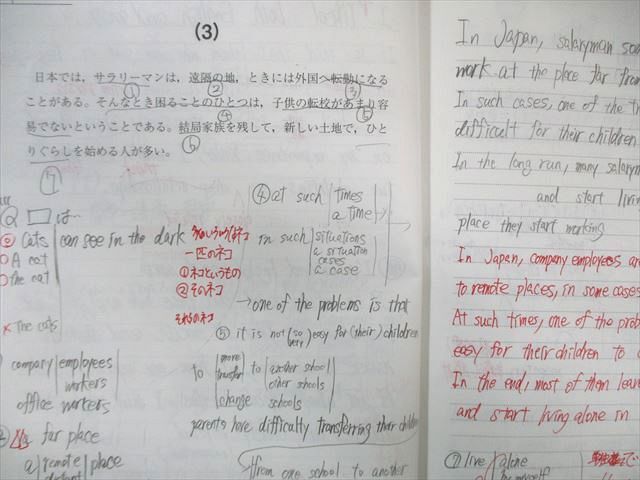 (3)
日本では，サラリーマンは，遠隔の地，ときには外国へ転勤になる
ことがある。そんなとき困ることのひとつは，子供の転校があまり容
易でないということである。結局家族を残して，新しい土地で，ひと
りぐらしを始める人が多い。
① ② ③
④ ⑤
⑥
⑦
Q □は…
◎ Cats can see in the dark
○ A cat
○ The cat
× The cats
一匹のネコ
①ネコというもの
②そのネコ
それらのネコ
company employees
workers
office workers
far place
a remote place
distant
④ at such times
a time
in such situations
a situation
cases
a case
→ one of the problems is that
⑤ it is not (so very) easy for (their) children
to move to another school
transfer other schools
change schools
parents have difficulty transferring their children
from one school to another
In Japan, salaryman
work at the place far from
In such cases, one of the
difficult for their children
In the long run, many salary
and start living
place they start working
In Japan, company employees are
to remote places, in some cases
At such times, one of the
easy for their children to
In the end, most of them leave
and start living alone in
⑦ live alone
by myself